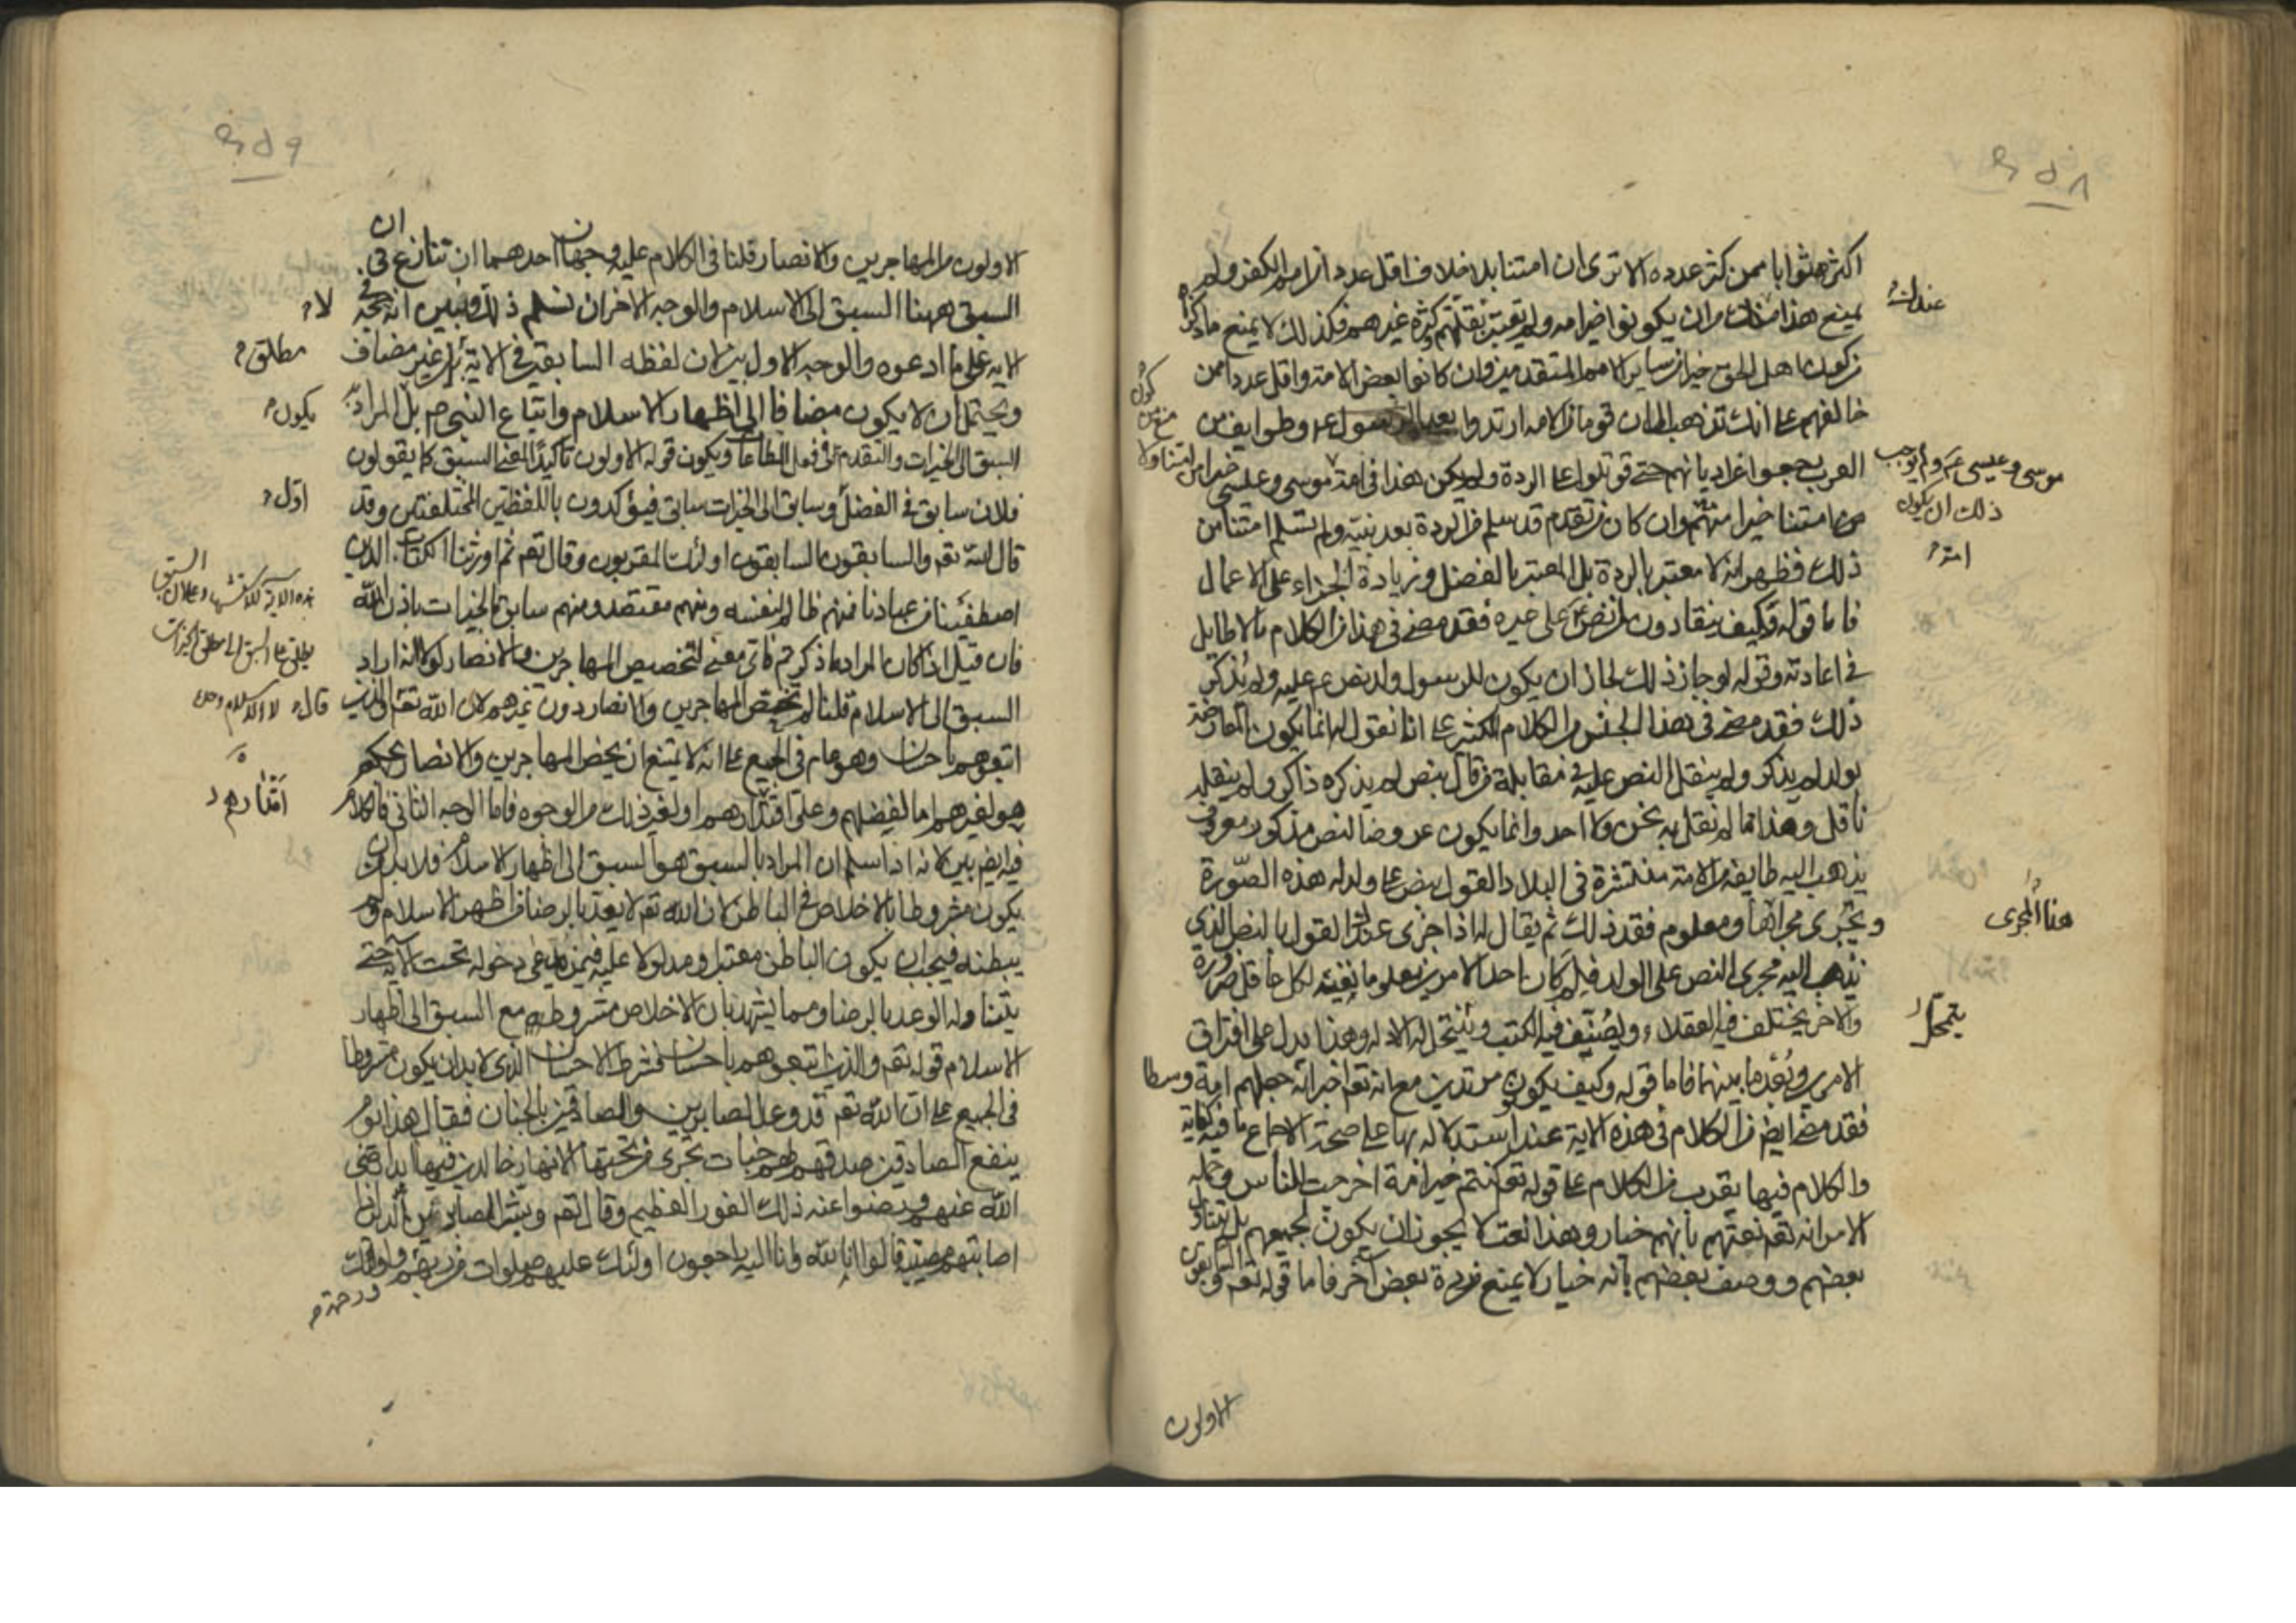 اكثرهم ثوابا ممن كثر عدده الا ترى ان امتنا بلا خلاف اقل عددا من امم الكفر ولم
يمنع هذا من ان يكونوا خيرا منه ولم تعتبر بقلتهم كثرة غيرهم فكذلك لا يمنع ما ذكرناه
عندك
من كون اهل الحق خيرا من ساير الامم المتقدمين وان كانوا بعض الامة واقل عددا ممن
خالفهم على انك تذهب الى ان قوما من الامة ارتدوا بعد الرسول عم وطوايف من
العرب رجعوا عن اديانهم حتى قوتلوا على الردة ولم يكن هذا في امة موسى وعيسى
موسى وعيسى عم ولم يوجب
ذلك ان يكون
امة
من امتنا خيرا منهم وان كان من تقدم قد سلم من الردة بعد نبيه ولم تسلم امتنا من
ذلك فظهر انه لا معتبر بالردة بل المعتبر بالفضل وزيادة الجزاء على الاعمال
فاما قوله وكيف ينقادون لمن نص على غيره فقد مضى في هذا من الكلام ما لا طايل
في اعادته وقوله لو جاز ذلك لجاز ان يكون للرسول ولد نص عم عليه ولم يذكر
ذلك فقد مضى في هذا الجنس من الكلام الكثير على انا نقول له انما يكون المعارضة
بولد لم يذكر ولم ينقل النص عليه في مقابلة من قال بنص لم يذكره ذاكر ولم ينقله
ناقل وهذا مما لم نقل به نحن ولا احد وانما يكون عروضا لنص مذكور معروف
يذهب اليه طايفة من الامة منتشرة في البلاد القول بنص على ولد له هذه الصورة
ويجري مجراها ومعلوم فقد ذلك ثم يقال له اذا جرى عندك القول بالنص الذي
هنا المجرى
نذهب اليه مجرى النص على الولد فلم كان احد الامرين معلوما نفيه لكل عاقل ضرورة
والاخر يختلف فيه العقلاء ويصنف فيه الكتب وينتحل له الادلة وهذا يدل على افتراق
يتمحل
الامرين وبعد ما بينهما فاما قوله وكيف يكون مرتدين مع انه تعم اخبر انه جعلهم امة وسطا
فقد مضى ايضم من الكلام في هذه الاية عند استدلاله بها على صحة الاجماع ما فيه كفاية
والكلام فيها يقرب من الكلام على قوله تعم كنتم خير امة اخرجت للناس وجملة
الامر انه تعم نعتهم بانهم خيار وهذا نعت لا يجوز ان يكون لجميعهم بل يتناول
بعضهم ووصف بعضهم بانه خيار لا يمنع من ردة بعض آخر فاما قوله تعم والسابقون
الاولون
الاولون من المهاجرين والانصار قلنا في الكلام عليه وجهان احدهما ان تنازع في ان
السبق ههنا السبق الى الاسلام والوجه الاخر ان نسلم ذلك ونبين انه لا حجة في
الاية على ما ادعوه والوجه الاول بين ان لفظه السابقة في الاية غير مضاف
مطلق
ويحتمل ان لا يكون مضافا الى اظهار الاسلام واتباع النبي ص بل المراد به
يكون
السبق الى الخيرات والتقدم في فعل الطاعات ويكون قوله الاولون تاكيدا لمعنى السبق كما يقولون
فلان سابق في الفضل وسابق الى الخيرات سابق فيؤكدون باللفظين المختلفين وقد
اول
قال الله تعم والسابقون السابقون اولئك المقربون وقال تعم ثم اورثنا الكتاب الذين
اصطفينا من عبادنا فمنهم ظالم لنفسه ومنهم مقتصد ومنهم سابق بالخيرات باذن الله
فان قيل اذا كان المراد ما ذكرتم فاي معنى لتخصيص المهاجرين والانصار لولا انه اراد
السبق الى الاسلام قلنا لم تختص المهاجرين والانصار دون غيرهم لان الله تعم قال والذين
اتبعوهم باحسان وهو عام في الجميع على انه لا يمتنع ان يخص المهاجرين والانصار بحكم
هو لغيرهم اما لفضلهم وعلو اقدارهم او لغير ذلك من الوجوه فاما الوجه الثاني فالكلام
اقدارهم
فيه ايضم بين لانه اذا سلم ان المراد بالسبق هو السبق الى اظهار الاسلام فلا بد من ان
يكون مشروطا بالاخلاص في الباطن لان الله تعم لا يعد بالرضا من اظهر الاسلام ولم
يبطنه فيجب ان يكون الباطن معتبرا ومدلولا عليه فيمن يدعي دخوله تحت الآية حتى
يتناوله الوعد بالرضا ومما يشهد بان الاخلاص مشروط مع السبق الى اظهار
الاسلام قوله تعم والذين اتبعوهم باحسان فشرط الاحسان الذي لا بد ان يكون مشروطا
في الجميع على ان الله تعم قد وعد الصابرين والصادقين بالجنان فقال هذا يوم
ينفع الصادقين صدقهم لهم جنات تجري من تحتها الانهار خالدين فيها ابدا رضي
الله عنهم ورضوا عنه ذلك الفوز العظيم وقال تعم وبشر الصابرين الذين اذا
اصابتهم مصيبة قالوا انا لله وانا اليه راجعون اولئك عليهم صلوات من ربهم ورحمة واولئك